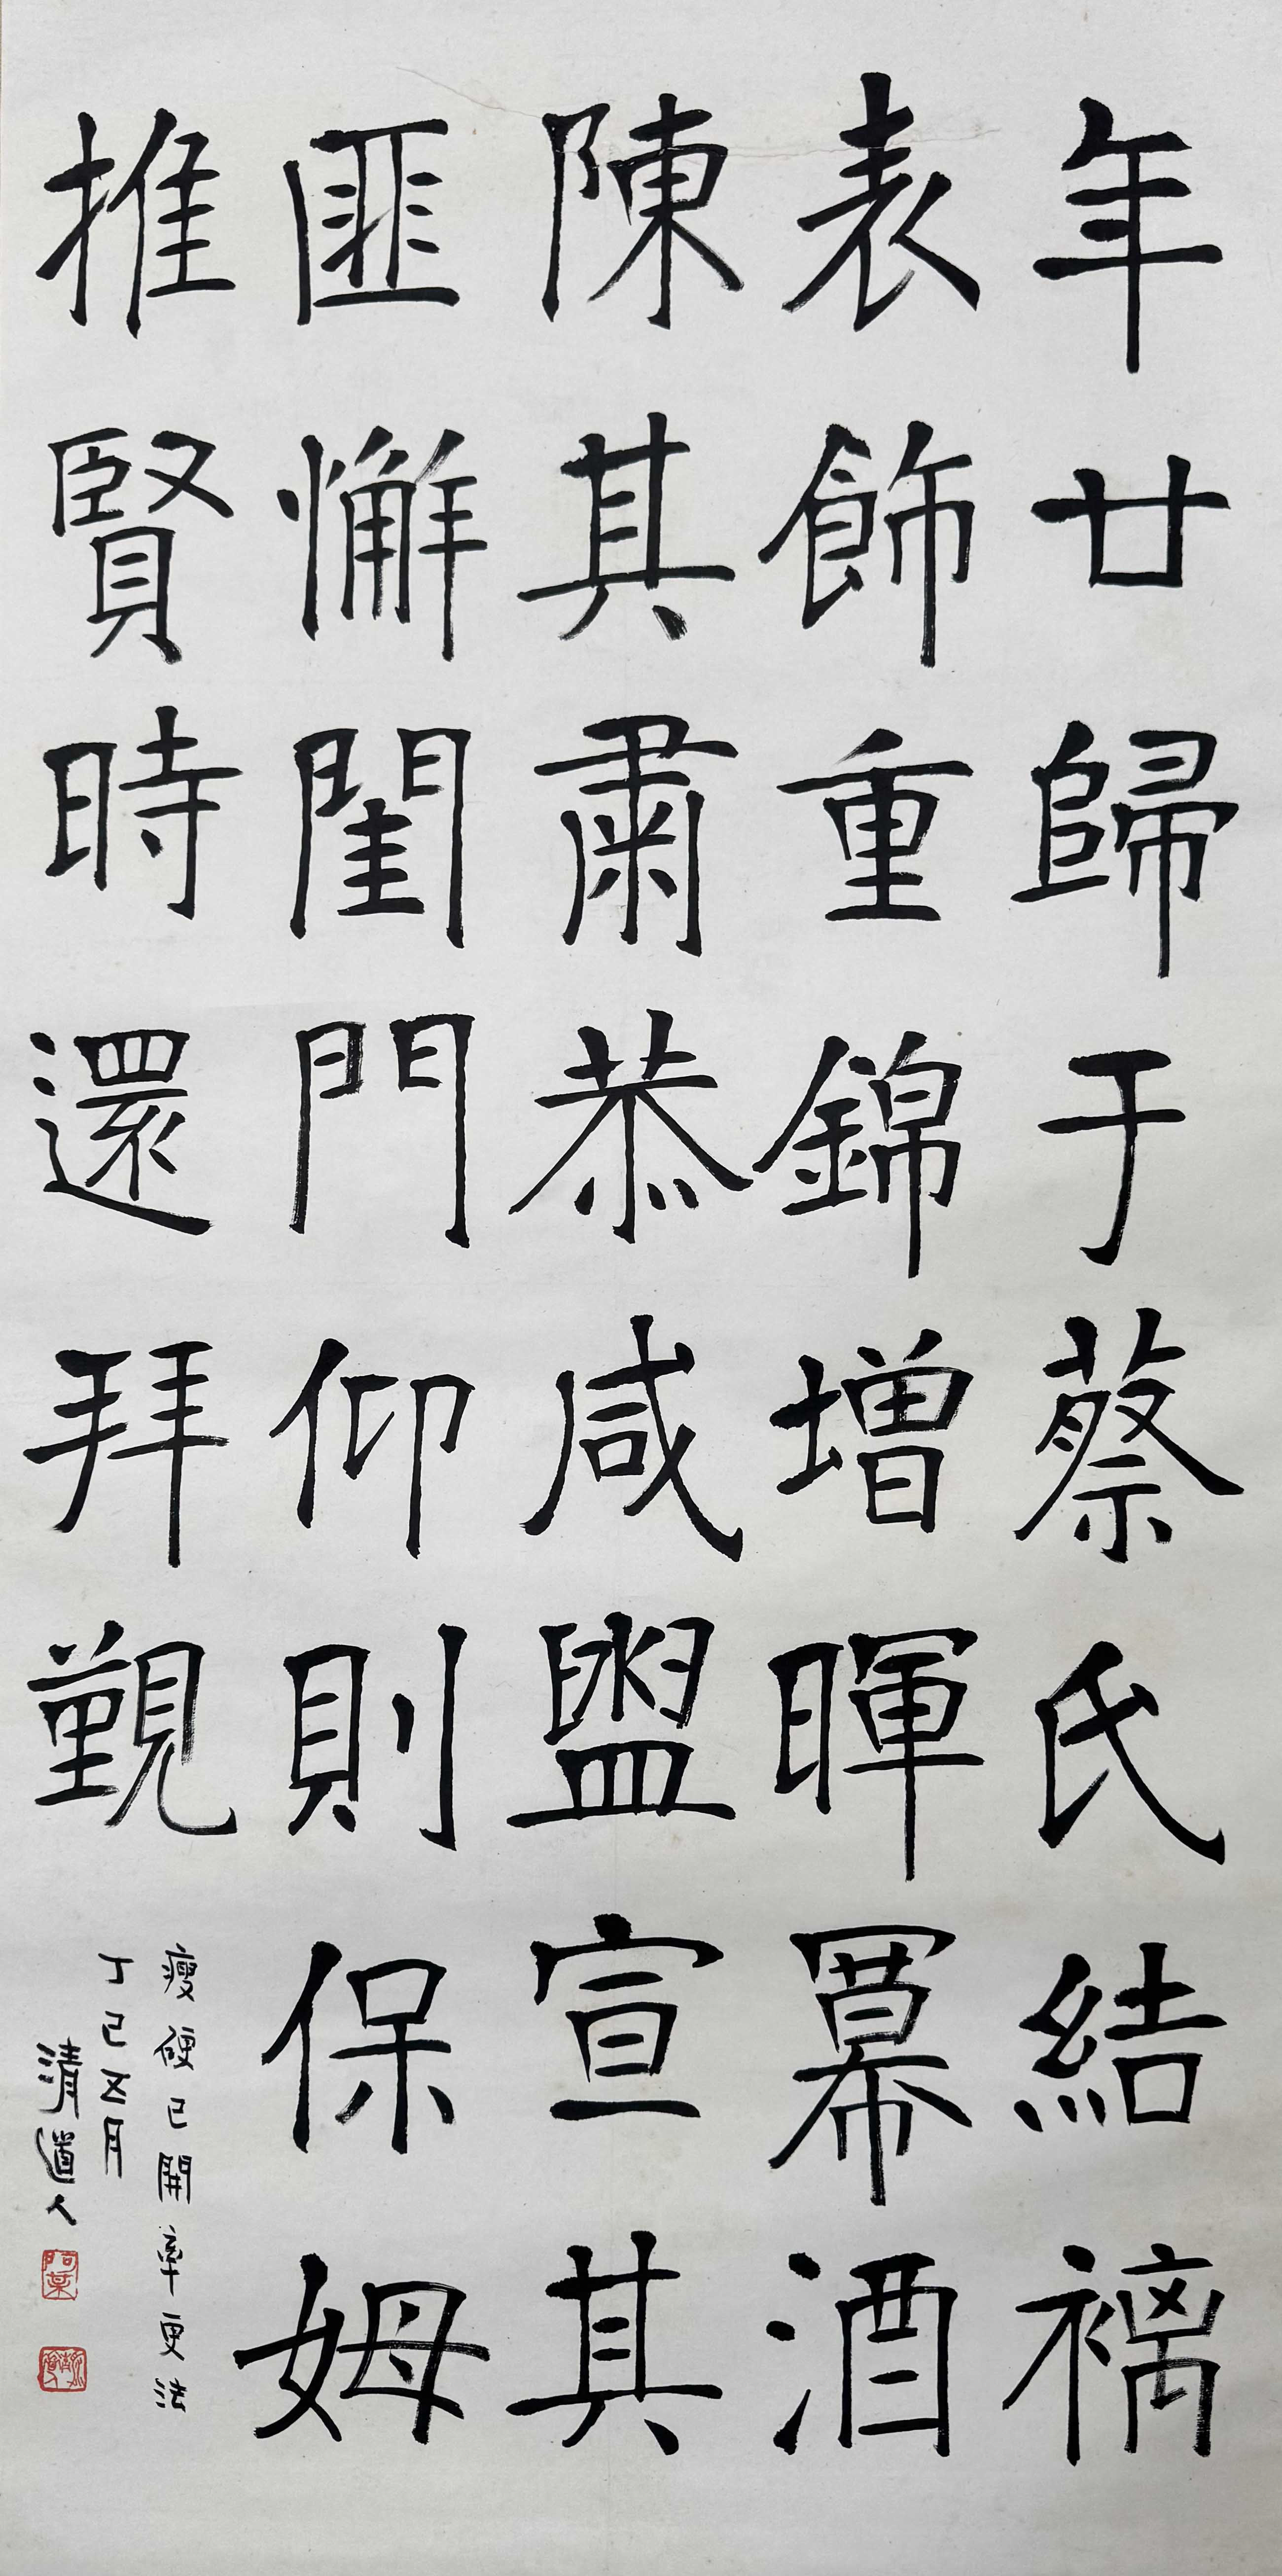 年廿歸于蔡氏結褵
表飾重錦增暉冪酒
陳其肅恭咸盥宣其
匪懈閨門仰則保姆
推賢時還拜覲
瘦硬已開率更法
丁巳五月
清道人
阿某